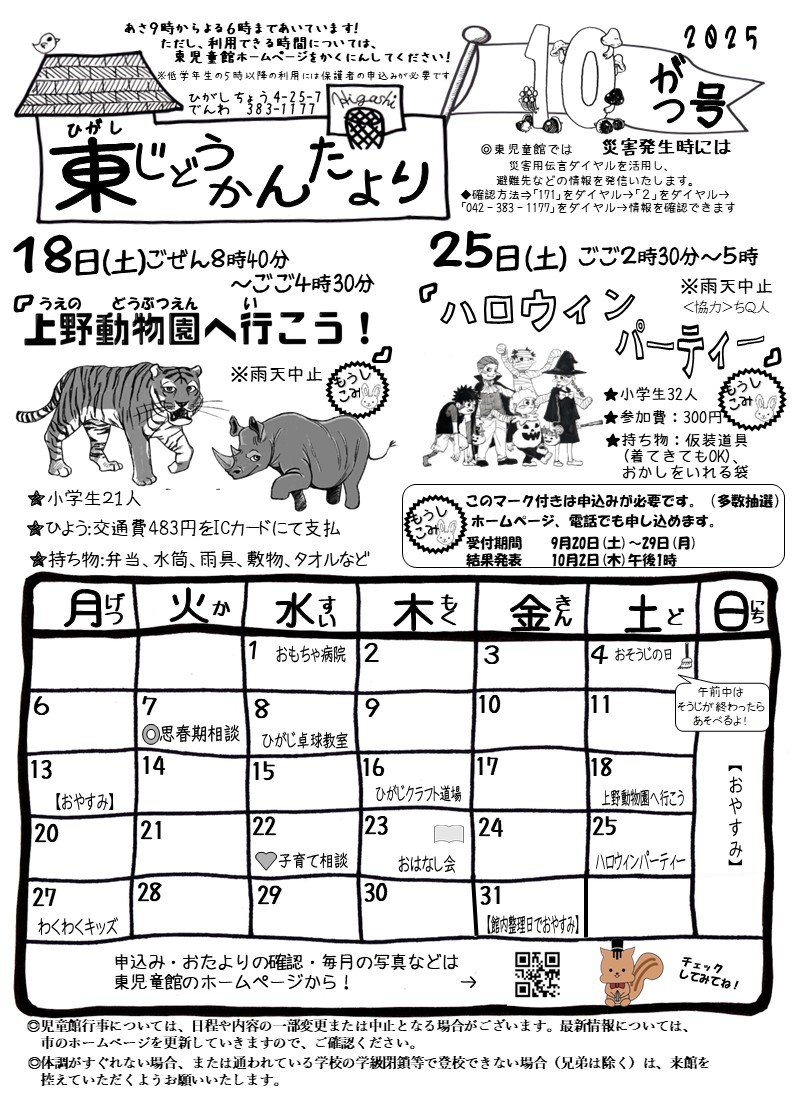 あさ9時からよる6時まであいています!
ただし、利用できる時間については、
東児童館ホームページをかくにんしてください!
※低学年生の5時以降の利用には保護者の申込みが必要です
ひがしちょう4-25-7
でんわ 383-1177
Higashi
ひがし
東じどうかんたより
2025
10がつ号
◎東児童館では 災害発生時には
災害用伝言ダイヤルを活用し、
避難先などの情報を発信いたします。
◆確認方法⇒「171」をダイヤル→「2」をダイヤル→
「042-383-1177」をダイヤル→情報を確認できます
18日(土)ごぜん8時40分
～ごご4時30分
うえの どうぶつえん い
『上野動物園へ行こう!』
※雨天中止
もうしこみ
★小学生21人
★ひょう:交通費483円をICカードにて支払
★持ち物:弁当、水筒、雨具、敷物、タオルなど
25日(土) ごご2時30分～5時
※雨天中止
<協力>ちQ人
『ハロウィン
パーティー』
もうしこみ
★小学生32人
★参加費：300円
★持ち物：仮装道具
(着てきてもOK)、
おかしをいれる袋
もうしこみ
このマーク付きは申込みが必要です。（多数抽選）
ホームページ、電話でも申し込めます。
受付期間 9月20日(土)～29日(月)
結果発表 10月2日(木)午後1時
月げつ 火か 水すい 木もく 金きん 土ど 日にち
1 おもちゃ病院
2
3
4 おそうじの日
午前中は
そうじが終わったら
あそべるよ!
6
7 ◎思春期相談
8 ひがじ卓球教室
9
10
11
13 【おやすみ】
14
15
16 ひがじクラフト道場
17
18 上野動物園へ行こう
【おやすみ】
20
21
22 子育て相談
23 おはなし会
24
25 ハロウィンパーティー
27 わくわくキッズ
28
29
30
31 【館内整理日でおやすみ】
申込み・おたよりの確認・毎月の写真などは
東児童館のホームページから! →
チェック
してみてね!
◎児童館行事については、日程や内容の一部変更または中止となる場合がございます。最新情報については、
市のホームページを更新していきますので、ご確認ください。
◎体調がすぐれない場合、または通われている学校の学級閉鎖等で登校できない場合（兄弟は除く）は、来館を
控えていただくようお願いいたします。